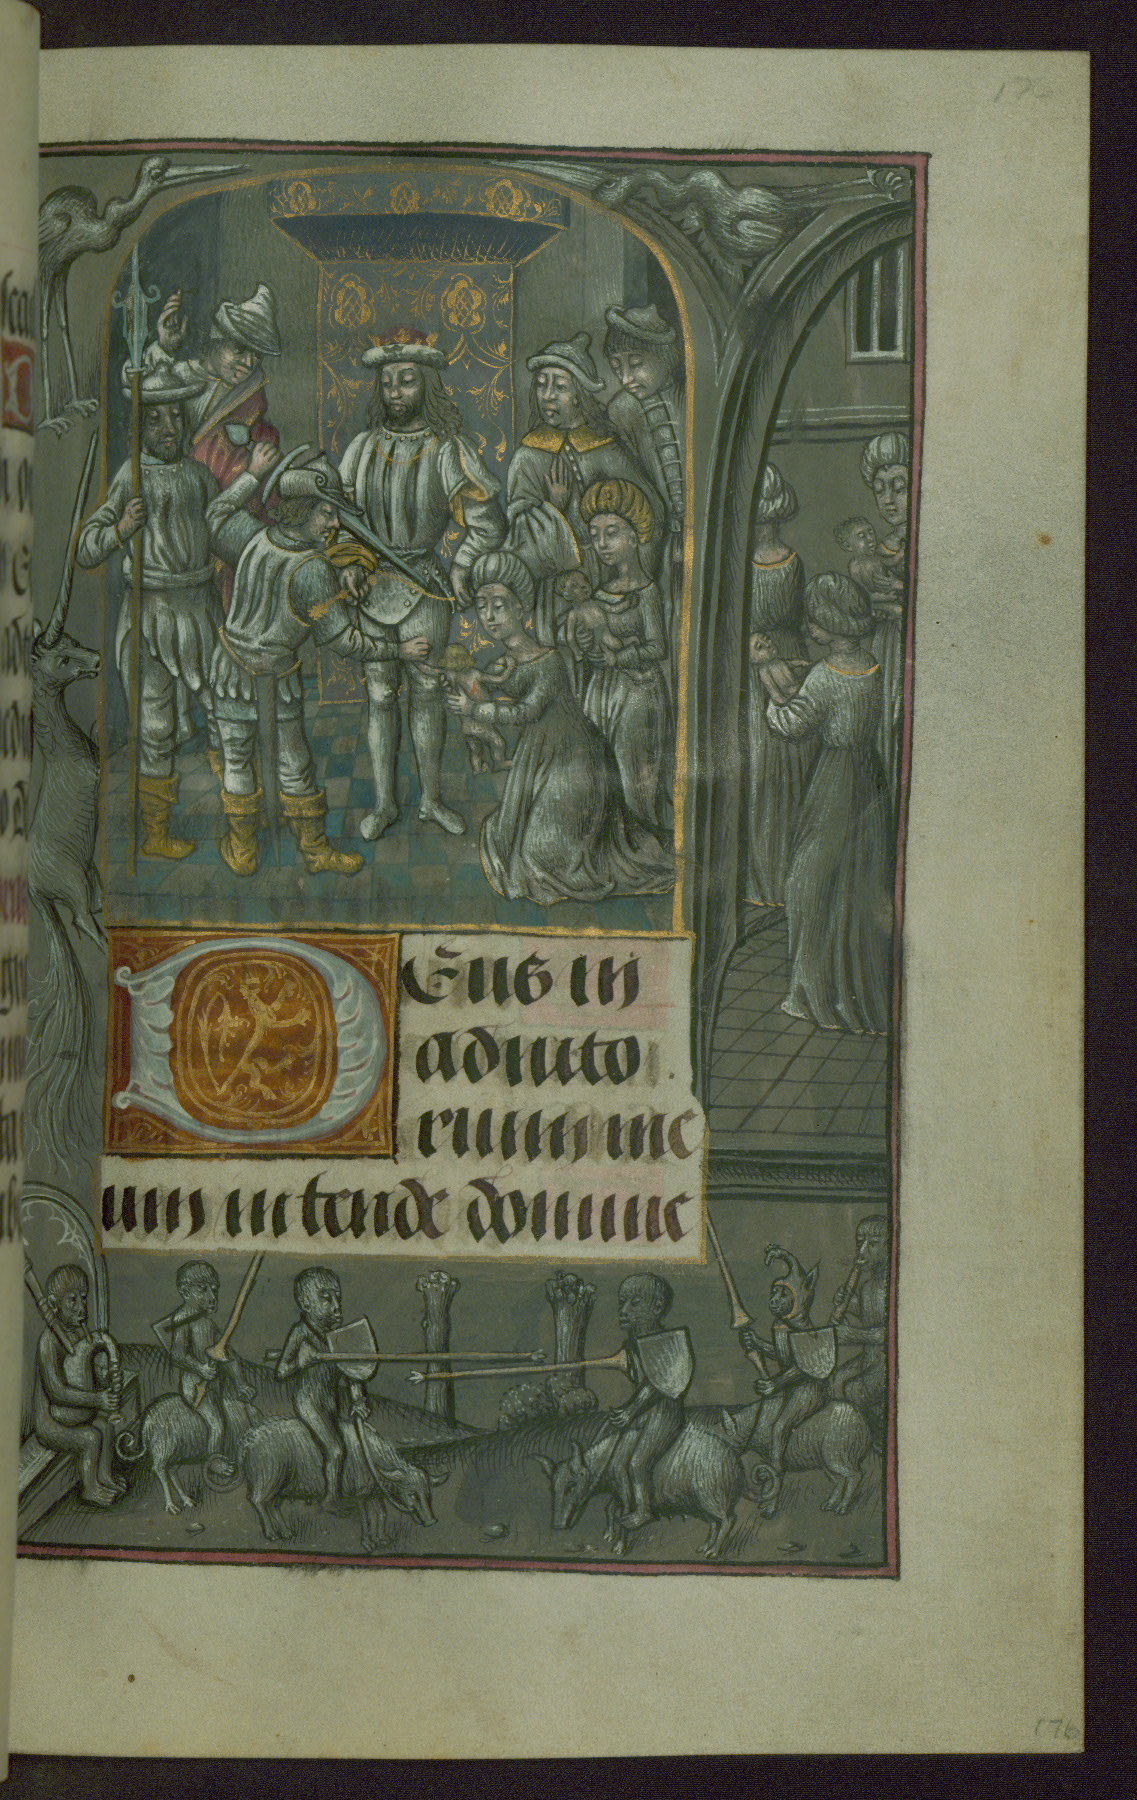 176
Deus in
adiuto
rium me
um intende domine
176